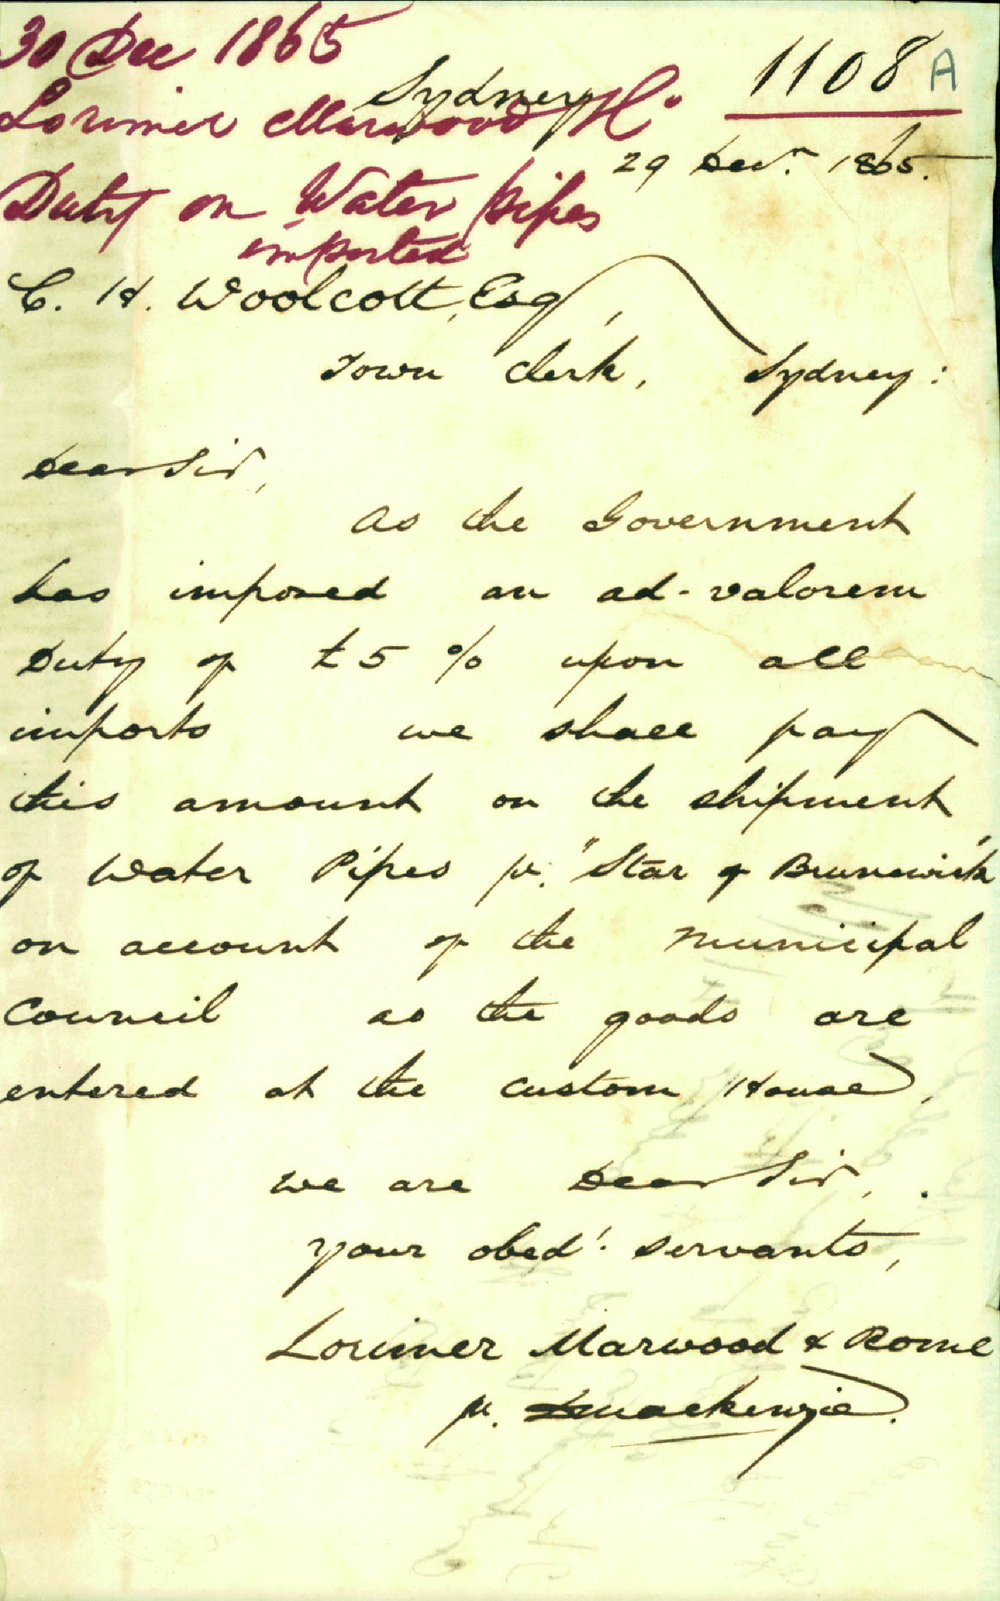 30 Dec 1865
1108 A
Sydney
Lorimer Marwood & Co
29 Decr. 1865.
Duty on Water Pipes
imported
C. H. Woolcott, Esq,
Town Clerk, Sydney:
Dear Sir,
As the Government
has imposed an ad-valorem
Duty of £5 % upon all
imports we shall pay
this amount on the shipment
of Water Pipes pr. "Star of Brunswick"
on account of the Municipal
Council as the goods are
entered at the Custom House,
we are Dear Sir,
your obedt. servants,
Lorimer Marwood & Rome
pr. Mackenzie.